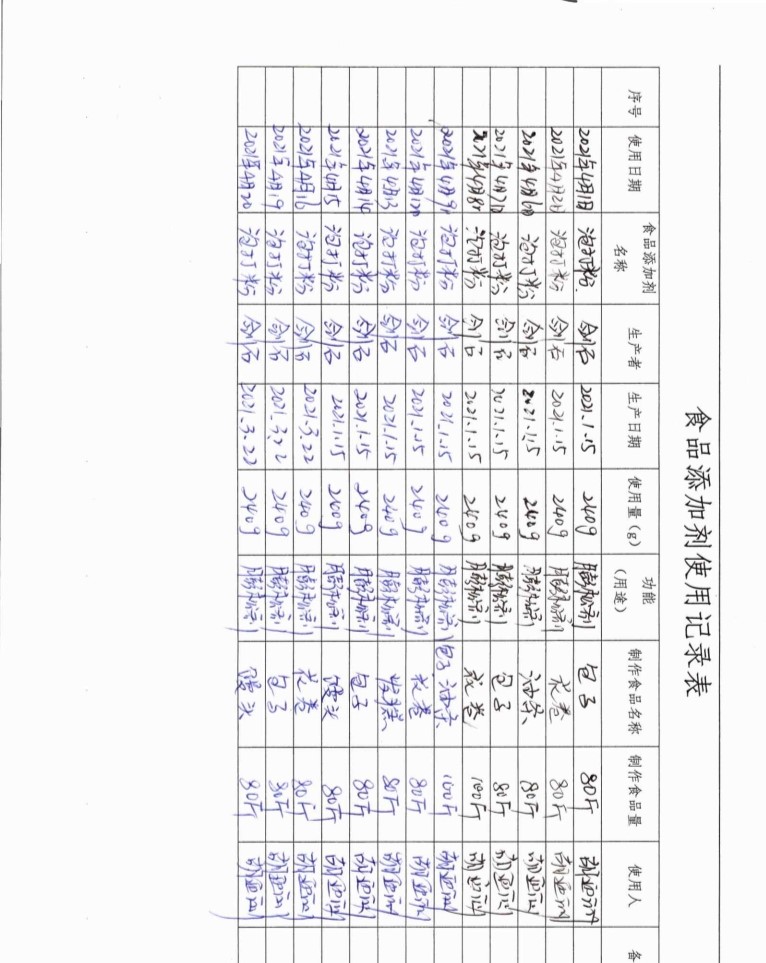 食品添加剂使用记录表
序号 使用日期 食品添加剂名称 生产者 生产日期 使用量（g） 功能（用途） 制作食品名称 制作食品量 使用人 备
2021年4月1日 泡打粉 剑石 2021.1.15 240g 膨松剂 包子 80斤
2021年4月2日 泡打粉 剑石 2021.1.15 240g 膨松剂 花卷 80斤
2021年4月6日 泡打粉 剑石 2021.1.15 240g 膨松剂 油条 80斤
2021年4月7日 泡打粉 剑石 2021.1.15 240g 膨松剂 包子 80斤
2021年4月8日 泡打粉 剑石 2021.1.15 240g 膨松剂 花卷 100斤
2021年4月9日 泡打粉 剑石 2021.1.15 240g 膨松剂 包子 油条 100斤
2021年4月 泡打粉 剑石 2021.1.15 240g 膨松剂 花卷 80斤
2021年4月13 泡打粉 剑石 2021.1.15 240g 膨松剂 80斤
2021年4月14 泡打粉 剑石 2021.1.15 240g 膨松剂 包子 80斤
2021年4月15 泡打粉 剑石 2021.1.15 240g 膨松剂 馒头 80斤
2021年4月16 泡打粉 剑石 2021.3.22 240g 膨松剂 花卷 80斤
2021年4月19 泡打粉 剑石 2021.3.22 240g 膨松剂 包子 80斤
2021年4月20 泡打粉 剑石 2021.3.22 240g 膨松剂 馒头 80斤